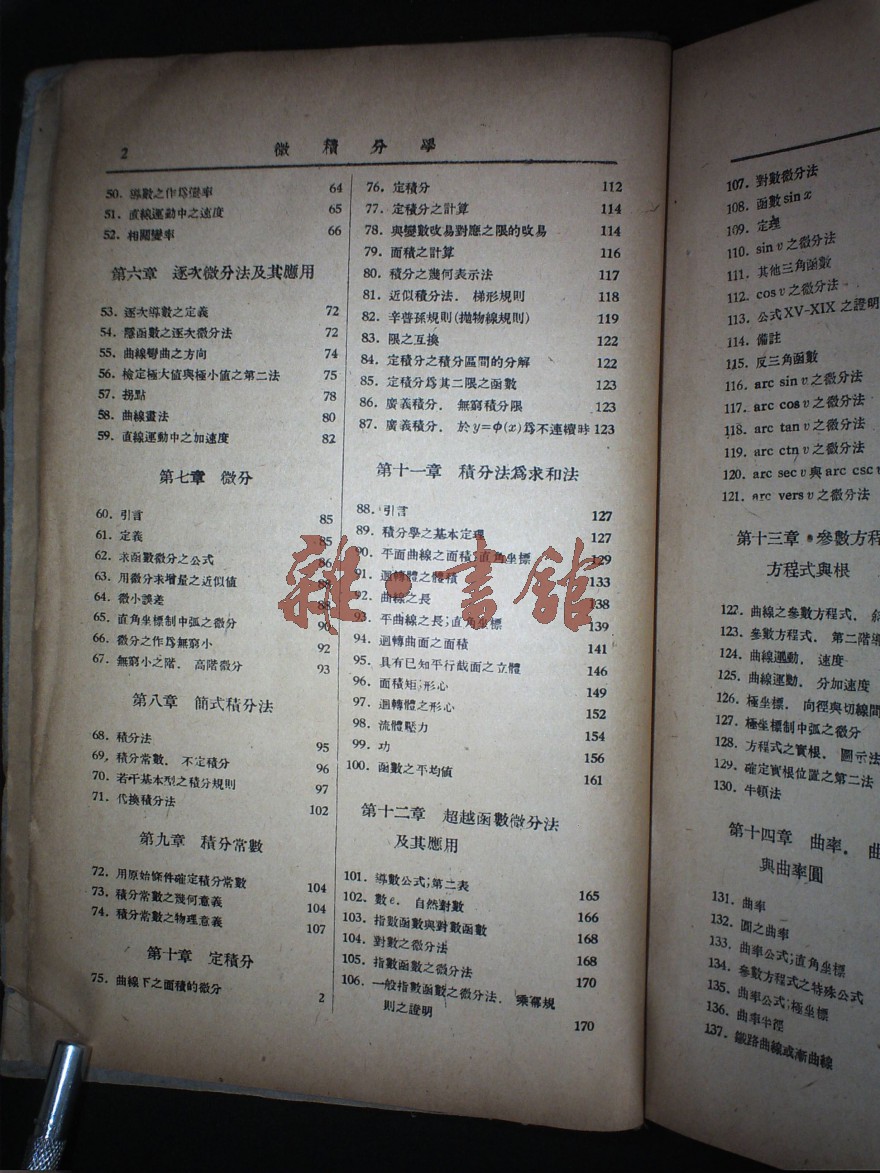 2
微積分學
50. 導數之作爲變率 64
51. 直線運動中之速度 65
52. 相關變率 66
第六章 逐次微分法及其應用
53. 逐次導數之定義 72
54. 隱函數之逐次微分法 72
55. 曲線彎曲之方向 74
56. 檢定極大值與極小值之第二法 75
57. 拐點 78
58. 曲線畫法 80
59. 直線運動中之加速度 82
第七章 微分
60. 引言 85
61. 定義 85
62. 求函數微分之公式 86
63. 用微分求增量之近似値 88
64. 微小誤差 88
65. 直角坐標制中弧之微分 90
66. 微分之作爲無窮小 92
67. 無窮小之階. 高階微分 93
第八章 簡式積分法
68. 積分法 95
69. 積分常數. 不定積分 96
70. 若干基本型之積分規則 97
71. 代換積分法 102
第九章 積分常數
72. 用原始條件確定積分常數 104
73. 積分常數之幾何意義 104
74. 積分常數之物理意義 107
第十章 定積分
75. 曲線下之面積的微分
2
76. 定積分 112
77. 定積分之計算 114
78. 與變數改易對應之限的改易 114
79. 面積之計算 116
80. 積分之幾何表示法 117
81. 近似積分法. 梯形規則 118
82. 辛普孫規則(拋物線規則) 119
83. 限之互換 122
84. 定積分之積分區間的分解 122
85. 定積分爲其二限之函數 123
86. 廣義積分. 無窮積分限 123
87. 廣義積分. 於y=φ(x)爲不連續時 123
第十一章 積分法爲求和法
88. 引言 127
89. 積分學之基本定理 127
90. 平面曲線之面積;直角坐標 129
91. 迴轉體之體積 133
92. 曲線之長 138
93. 平曲線之長;直角坐標 139
94. 迴轉曲面之面積 141
95. 具有已知平行截面之立體 146
96. 面積矩;形心 149
97. 迴轉體之形心 152
98. 流體壓力 154
99. 功 156
100. 函數之平均値 161
第十二章 超越函數微分法
及其應用
101. 導數公式;第二表 165
102. 數e. 自然對數 166
103. 指數函數與對數函數 168
104. 對數之微分法 168
105. 指數函數之微分法 170
106. 一般指數函數之微分法. 乘冪規
則之證明 170
雜·書館
107. 對數微分法
108. 函數 sin x
109. 定理
110. sin v 之微分法
111. 其他三角函數
112. cos v 之微分法
113. 公式XV-XIX之證明
114. 備註
115. 反三角函數
116. arc sin v 之微分法
117. arc cos v 之微分法
118. arc tan v 之微分法
119. arc ctn v 之微分法
120. arc sec v 與 arc csc v
121. arc vers v 之微分法
第十三章 參數方程
方程式與根
122. 曲線之參數方程式.
123. 參數方程式. 第二階導
124. 曲線運動. 速度
125. 曲線運動. 分加速度
126. 極坐標. 向徑與切線間
127. 極坐標制中弧之微分
128. 方程式之實根. 圖示法
129. 確定實根位置之第二法
130. 牛頓法
第十四章 曲率. 曲
與曲率圓
131. 曲率
132. 圓之曲率
133. 曲率公式;直角坐標
134. 參數方程式之特殊公式
135. 曲率公式;極坐標
136. 曲率半徑
137. 鐵路曲線或漸曲線